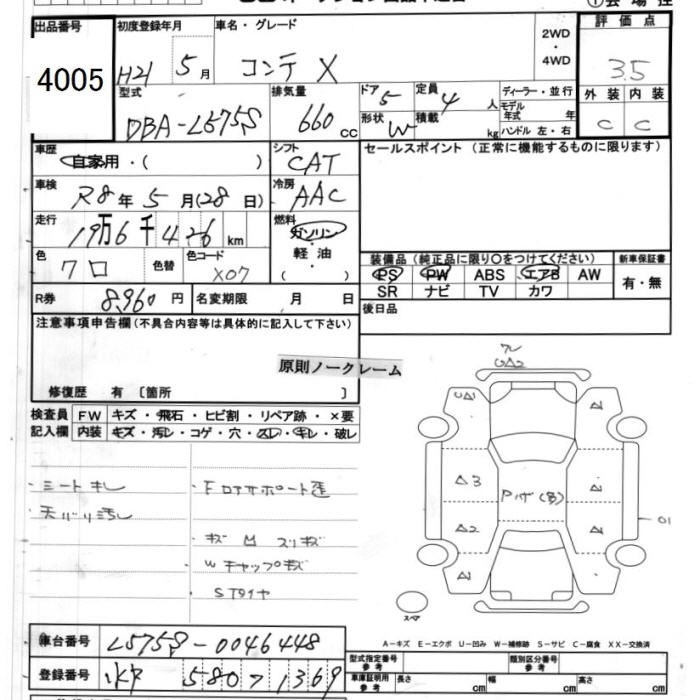 出品番号
4005
初度登録年月
H21 5月
車名・グレード
コンテ X
2WD
・
4WD
評価点
3.5
型式
DBA-L575S
排気量
660 cc
ドア
5
定員
4 人
形状
W
積載
kg
ディーラー・並行
モデル
年式 年
ハンドル 左・右
外装 内装
C C
車歴
自家用・( )
シフト
CAT
セールスポイント(正常に機能するものに限ります)
車検
R8年 5月(28日)
冷房
AAC
走行
19万6千426 km
燃料
ガソリン
・
軽油
・
( )
色
クロ
色替
色コード
X07
装備品(純正品に限り○をつけてください)
PS PW ABS エアB AW
SR ナビ TV カワ
新車保証書
有・無
R券
8,960円
名変期限 月 日
後日品
注意事項申告欄(不具合内容等は具体的に記入して下さい)
原則ノークレーム
修復歴 有〔箇所 〕
検査員
記入欄
FW キズ・飛石・ヒビ割・リペア跡・×要
内装 キズ・汚レ・コゲ・穴・スレ・キレ・破レ
・シートキレ
・天バリ汚レ
・Fロアサポート歪
・キズ 凹 スリキズ
Wキャップキズ
STタイヤ
ワレ
UA2
UA1
A1
A3
A1
Pハゲ(多)
A2
A1
01
A1
A1
スペア
A-キズ E-エクボ U-凹み W-補修跡 S-サビ C-腐食 XX-交換済
車台番号
L575S-0046448
登録番号
580 ワ 1369
型式指定番号
参考
類別区分番号
参考
車庫証明用
参考
長さ cm
幅 cm
高さ cm